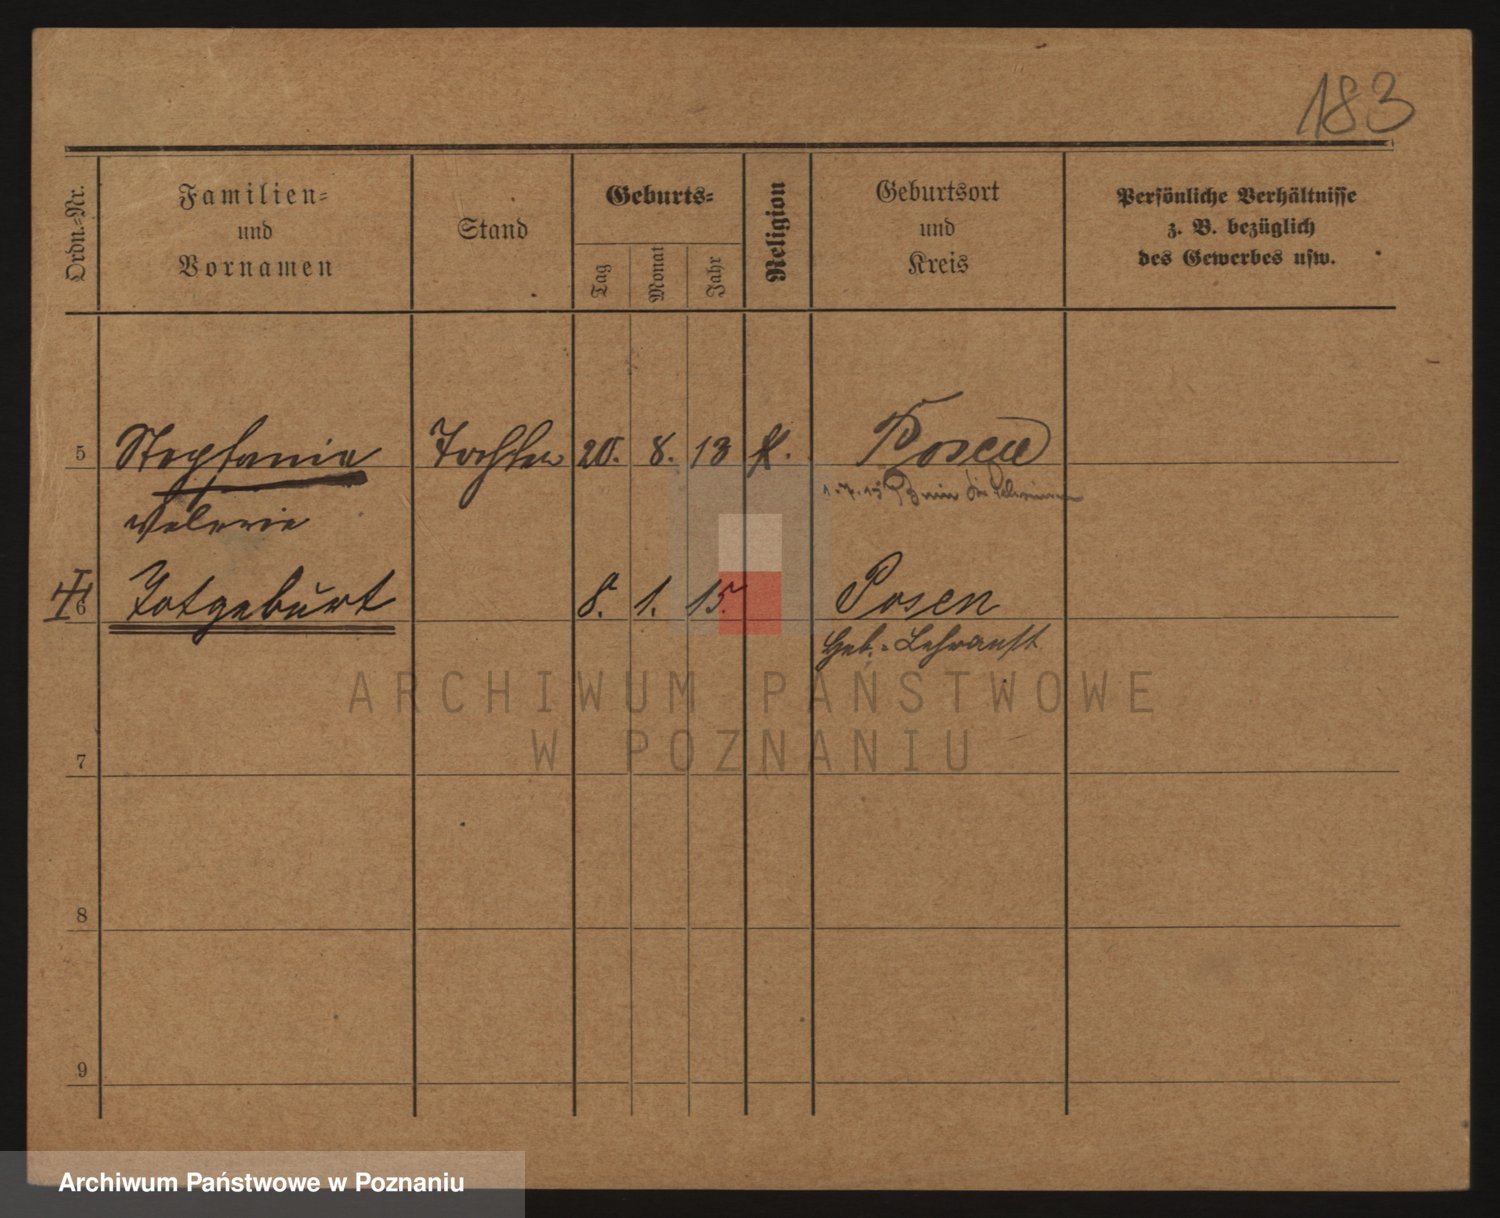 183
Ordn.-Nr.
Familien-
und
Vornamen
Stand
Geburts-
Tag
Monat
Jahr
Religion
Geburtsort
und
Kreis
Persönliche Verhältnisse
z. B. bezüglich
des Gewerbes usw.
5 Stephanie Tochter 20. 8. 13 k. Posen
1.7.15
Valerie
6 Totgeburt 8. 1. 15. Posen
Geb.-Lehranst
7
8
9
ARCHIWUM PAŃSTWOWE
W POZNANIU
Archiwum Państwowe w Poznaniu